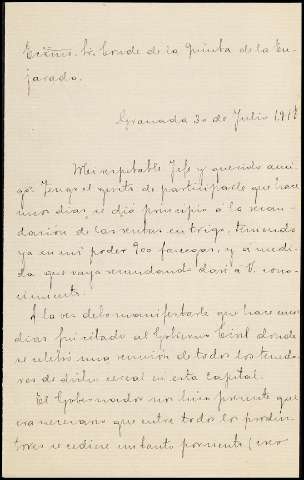 Excmo. Sr. Conde de la Quinta de la En-
jarada.
Granada 30 de Julio 191
Mi respetable Jefe y querido ami-
go: Tengo el gusto de participarle que hace
unos días, se dió principio á la recau-
dación de las rentas en trigo, teniendo
ya en mi poder 900 fanegas, y a medi-
da que vaya recaudando daré á V. cono-
cimiento.
Á la vez debo manifestarle que hace unos
días fuí citado al Gobierno Civil donde
se celebró una reunión de todos los tenedo-
res de dicho cereal en esta Capital.
El Gobernador nos hizo presente que
era necesario que entre todos los produc-
tores se cediese un tanto por ciento (creo